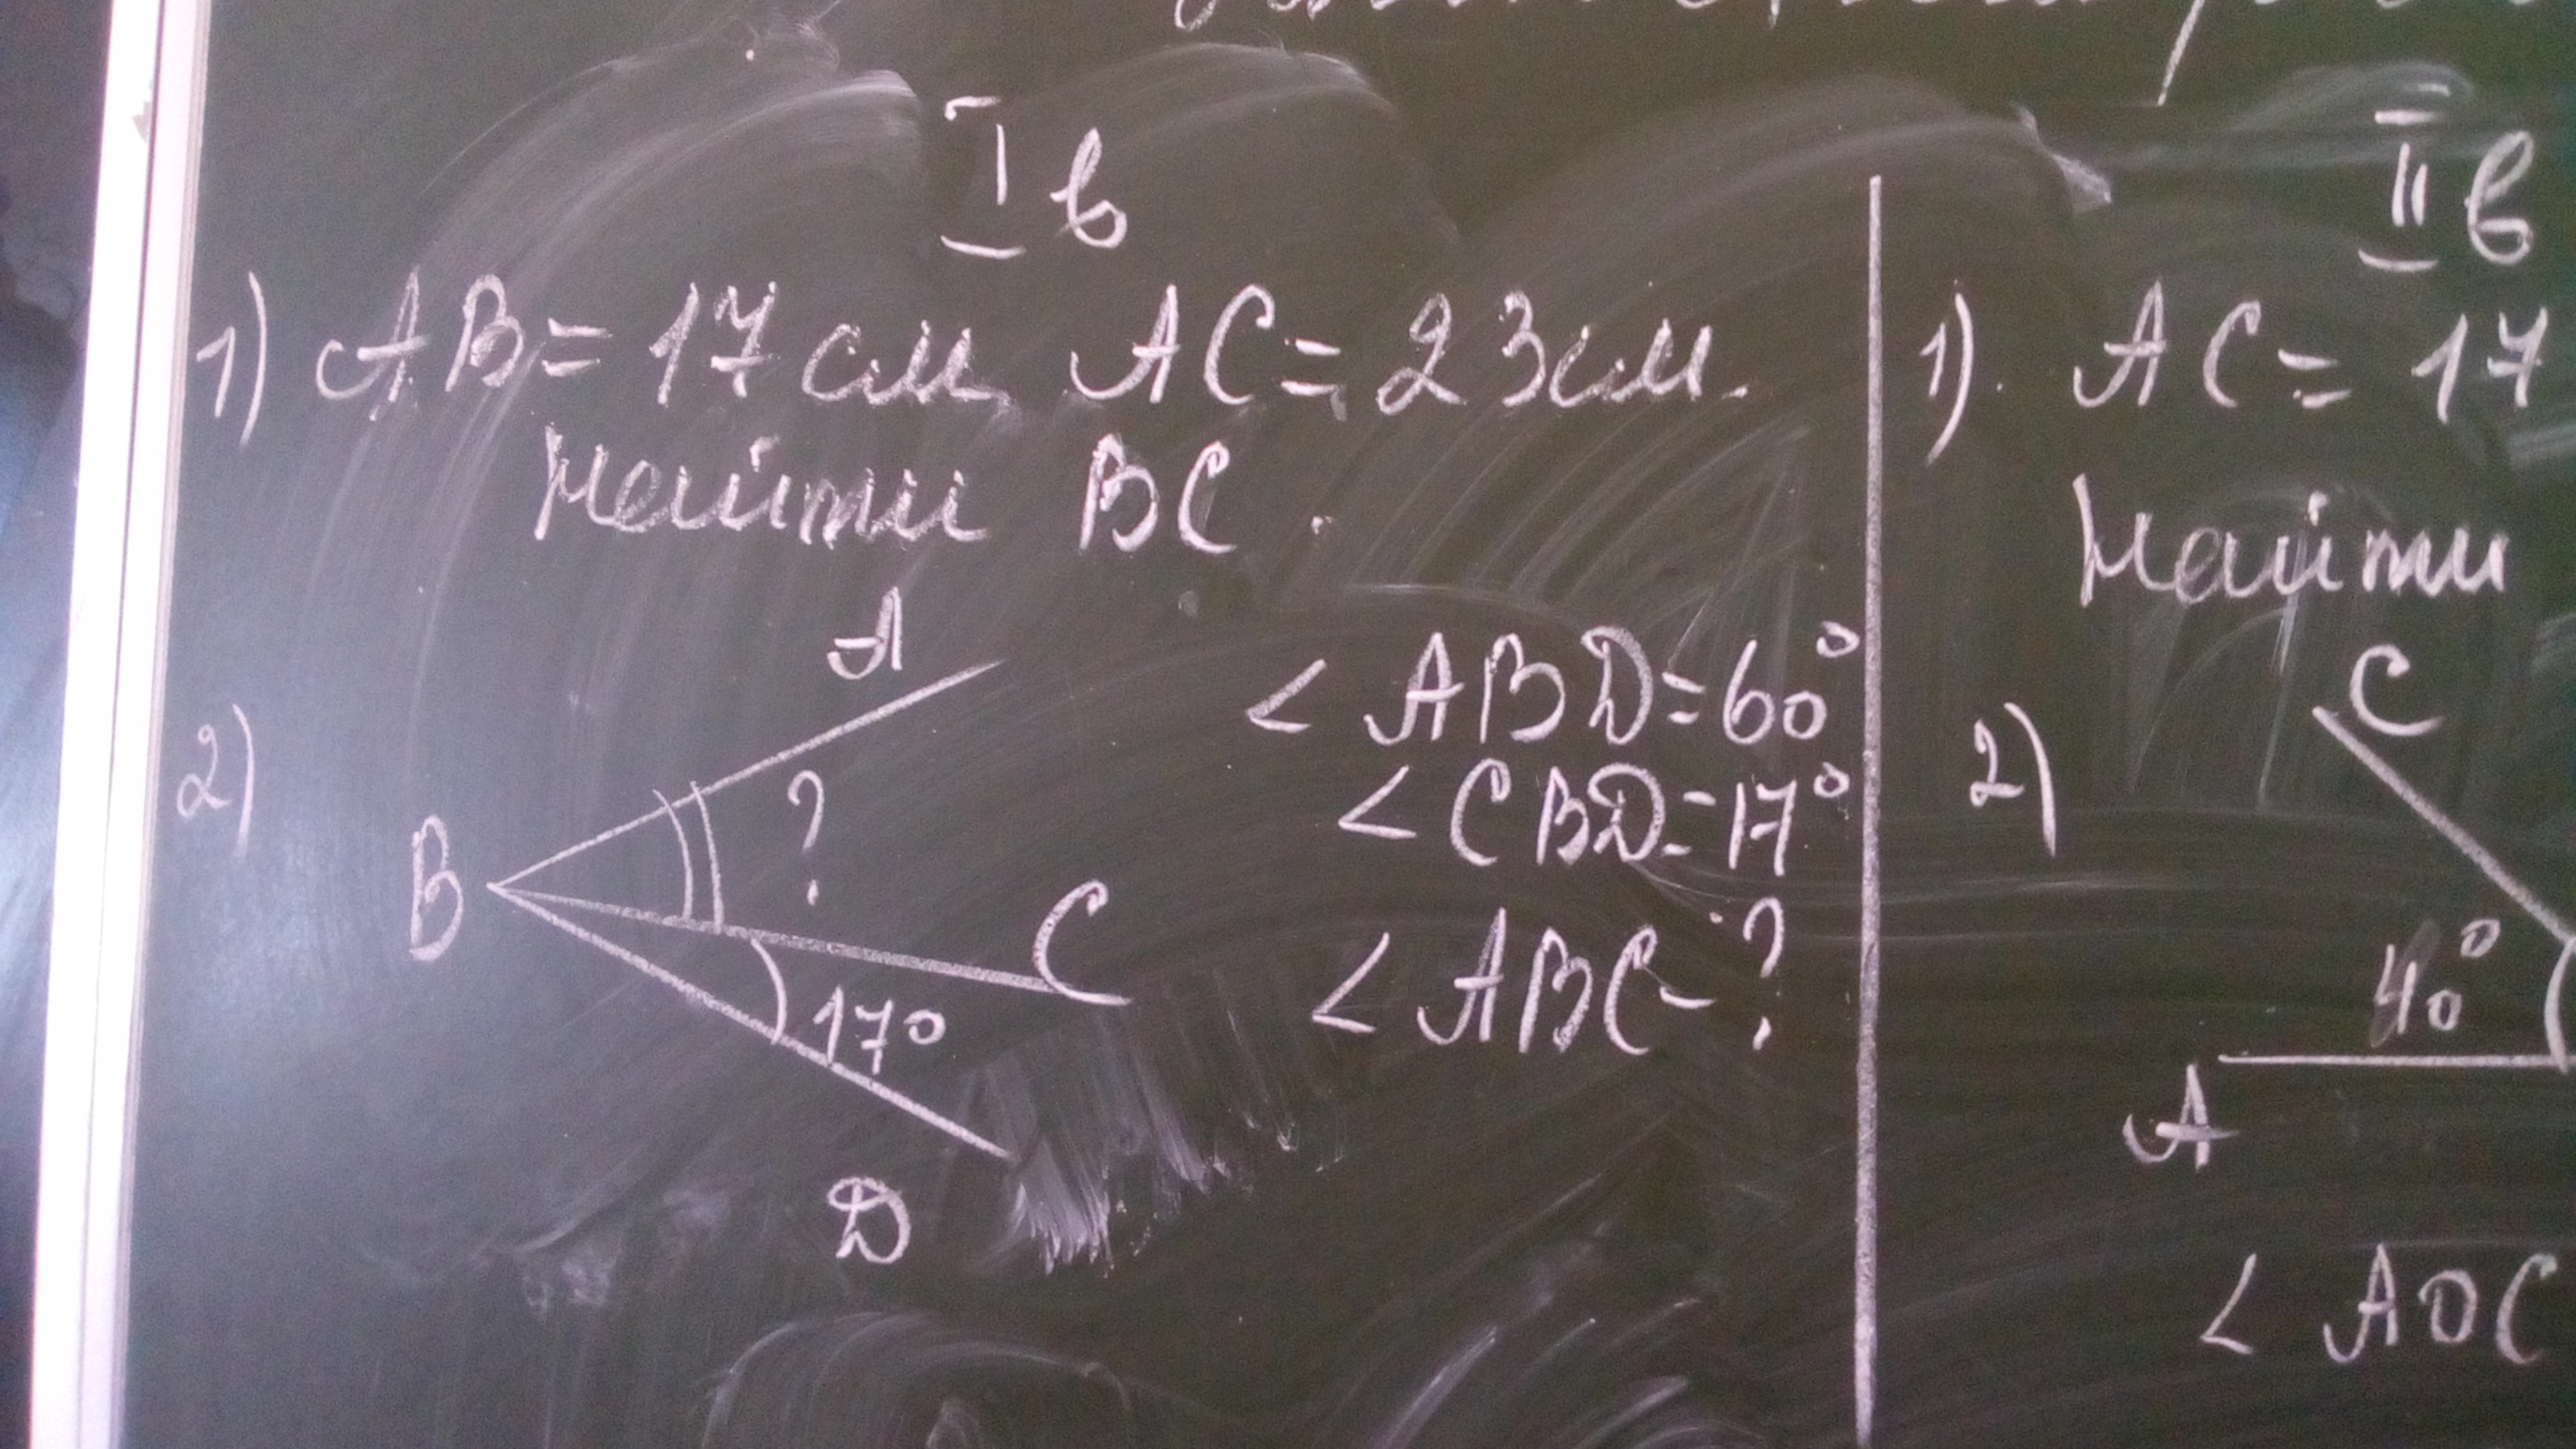 I в
1) AB = 17 см, AC = 23 см.
Найти BC.
2)
A
B
?
C
17°
D
< ABD = 60°
< CBD = 17°
< ABC - ?
II в
1). AC = 17
Найти
2)
C
40°
A
< AOC